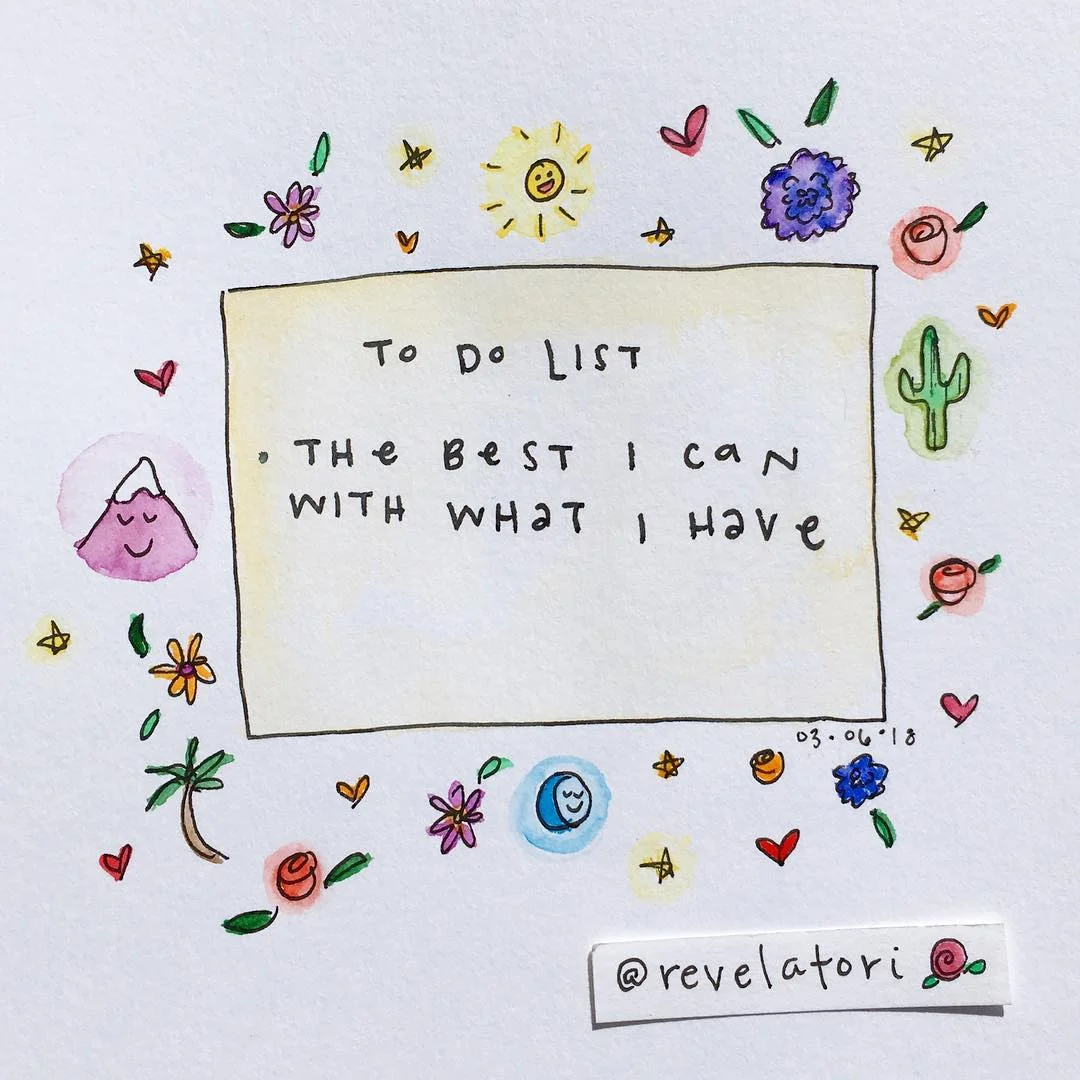 To Do LIST
• THe BeST I CaN
WITH WHaT I Have
03•06•18
@revelatori